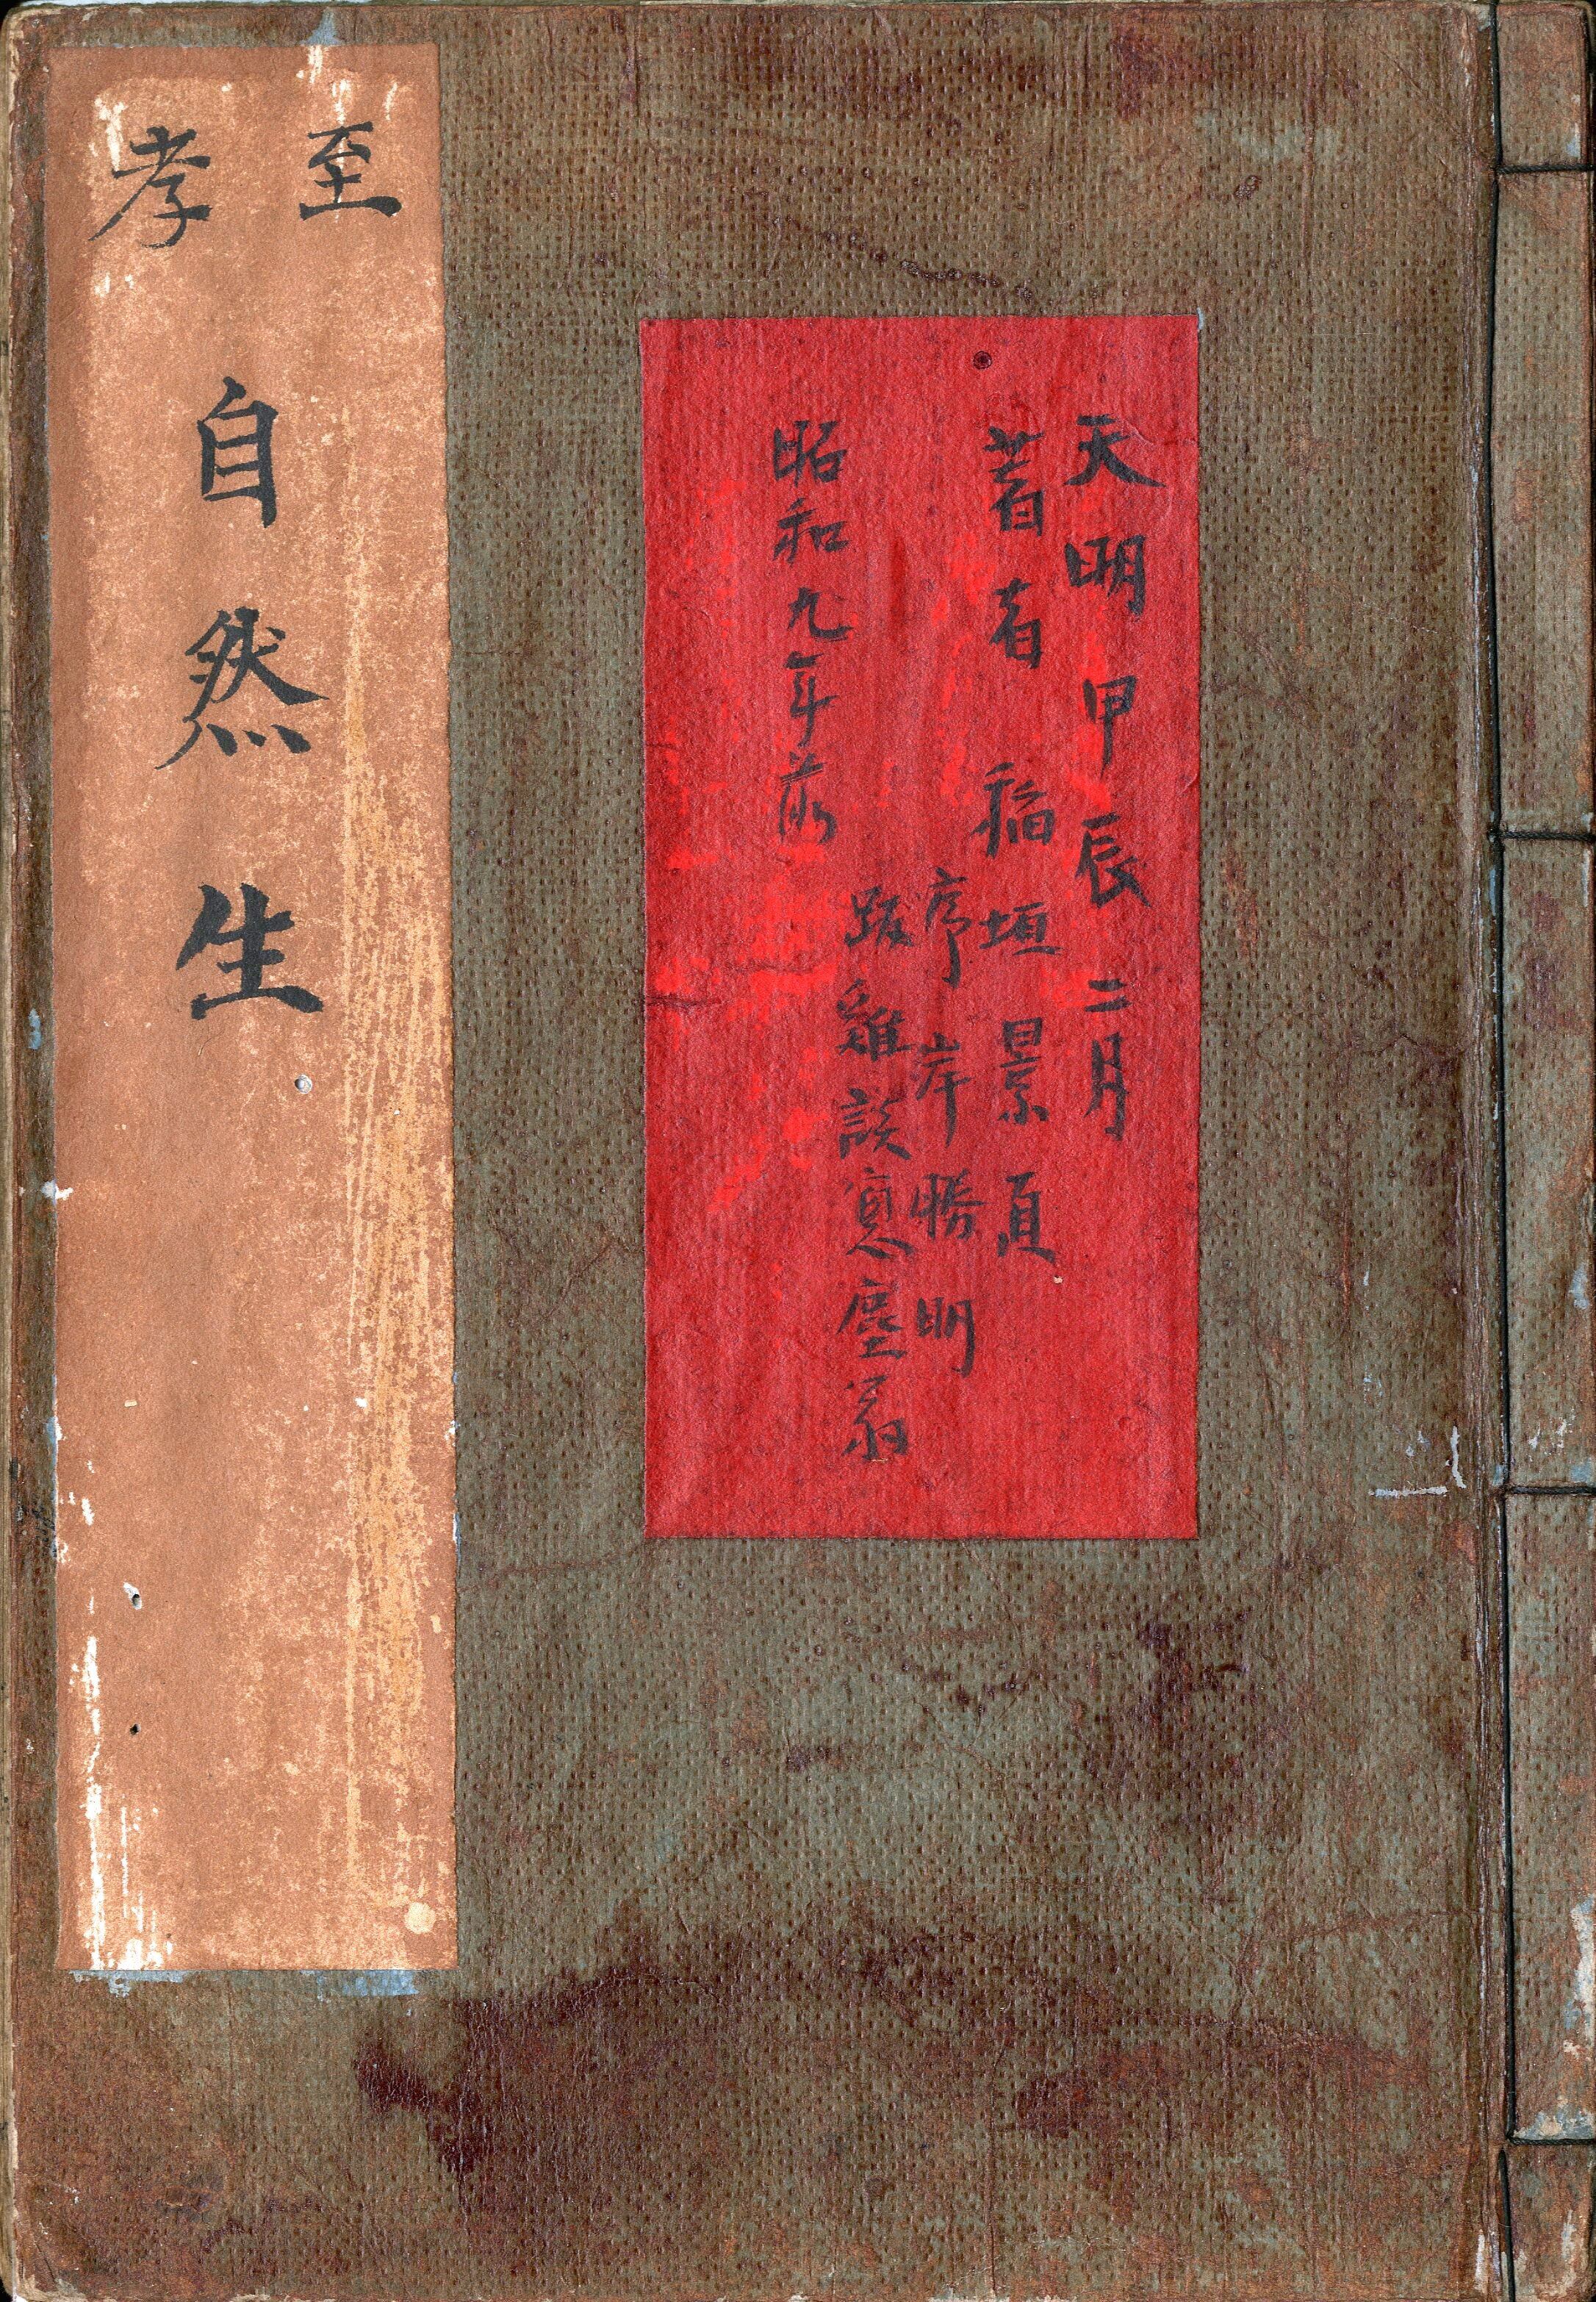 天明甲辰二月
著者 稲垣景真
序 岸勝明
跋 雞談窓塵翁
昭和九年前
至孝
自然生